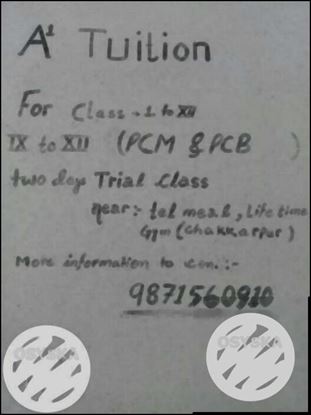 A1 Tuition
For Class - 1 to XII
IX to XII (PCM & PCB )
two days Trial Class
near :- , Life time
Gym (Chakkarpur)
More information to con. :-
9871560910
OSYSKA OSYSKA